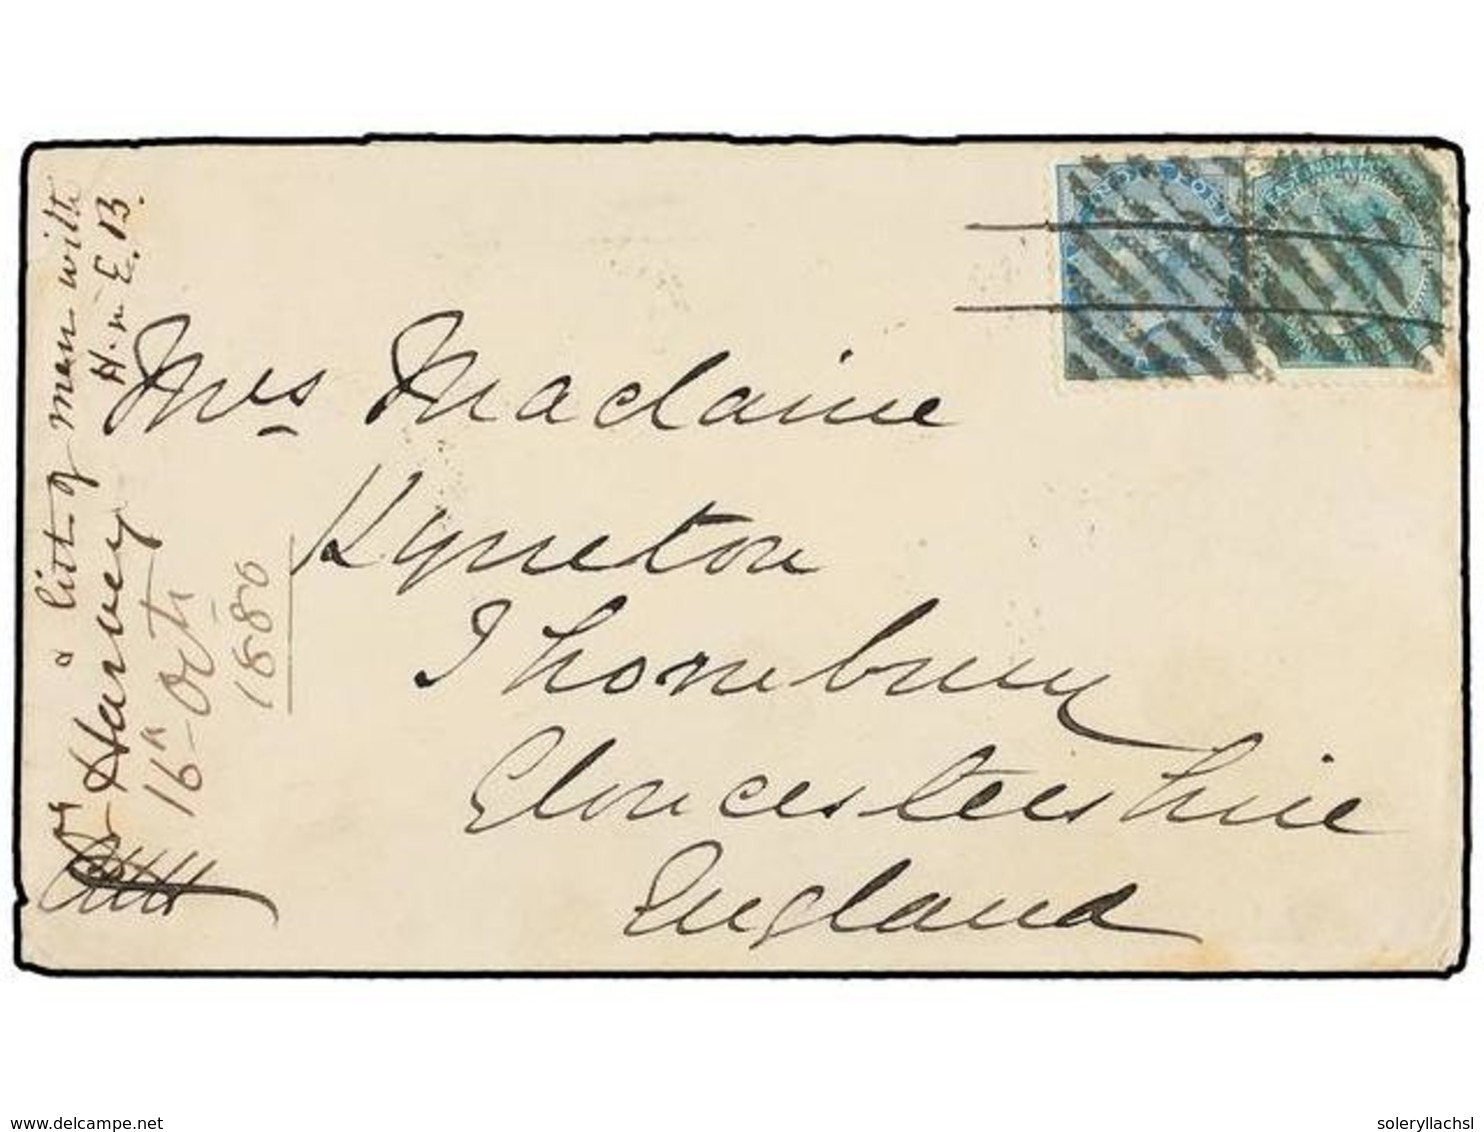 Mrs Maclaine
Kyneton
Thornbury
Gloucestershire
England
& list of men with
H.m. E.B.
Dr Harvey
16th Octr
1880
EAST INDIA POSTAGE
delcampe.net
soleryllachsl